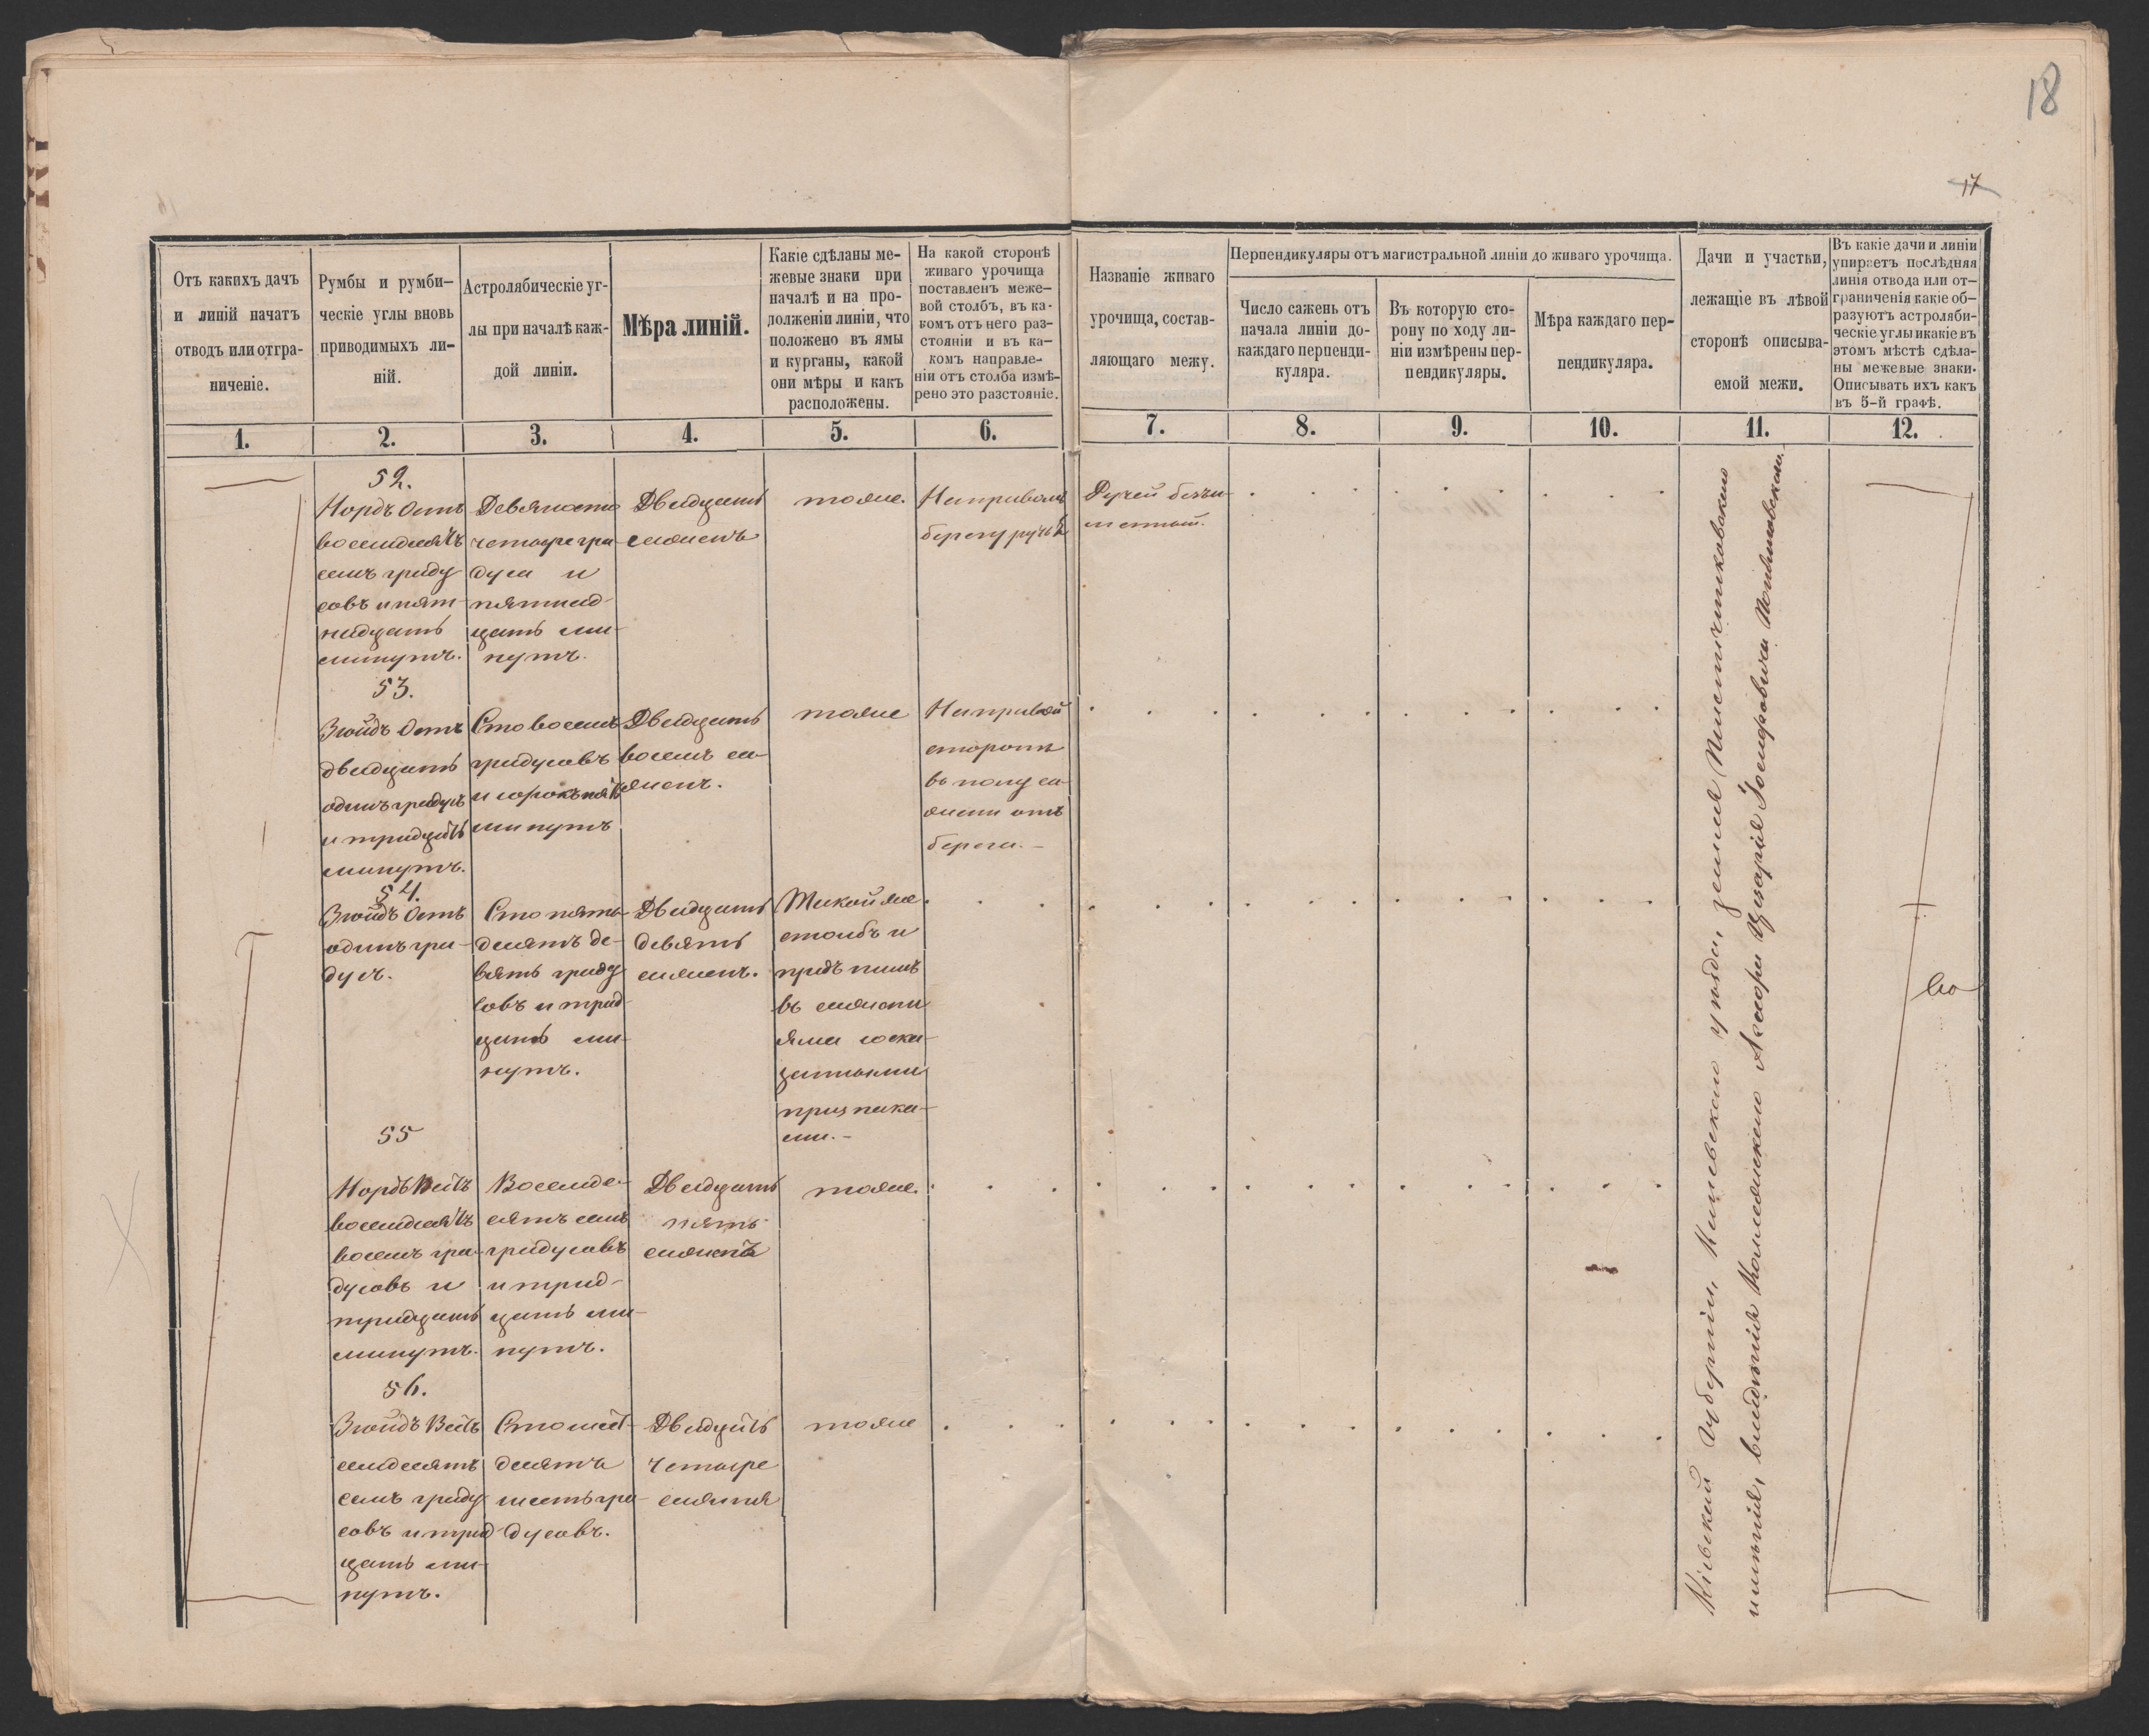 18
17
Отъ какихъ дачъ
и линій начатъ
отводъ или отгра-
ниченіе.
Румбы и румби-
ческіе углы вновь
приводимыхъ ли-
ній.
Астролябическіе уг-
лы при началѣ каж-
дой линіи.
Мѣра линій.
Какіе сдѣланы ме-
жевые знаки при
началѣ и на про-
долженіи линіи, что
положено въ ямы
и курганы, какой
они мѣры и какъ
расположены.
На какой сторонѣ
живаго урочища
поставленъ меже-
вой столбъ, въ ка-
комъ отъ него раз-
стояніи и въ ка-
комъ направле-
ніи отъ столба измѣ-
рено это разстояніе.
Названіе живаго
урочища, состав-
ляющаго межу.
Перпендикуляры отъ магистральной линіи до живаго урочища.
Число сажень отъ
начала линіи до
каждаго перпенди-
куляра.
Въ которую сто-
рону по ходу ли-
ніи измѣрены пер-
пендикуляры.
Мѣра каждаго пер-
пендикуляра.
Дачи и участки,
лежащіе въ лѣвой
сторонѣ описыва-
емой межи.
Въ какіе дачи и линіи
упираетъ послѣдняя
линія отвода или от-
граниченія какіе об-
разуютъ астроляби-
ческіе углы и какіе въ
этомъ мѣстѣ сдѣла-
ны межевые знаки.
Описывать ихъ какъ
въ 5-й графѣ.
1. 2. 3. 4. 5. 6. 7. 8. 9. 10. 11. 12.
52.
Нордъ Остъ
восемдесятъ
семъ граду
совъ и пят-
надцать
минутъ.
Девяносто
четыре гра-
дуса и
пятнад-
цать ми-
нутъ.
Двадцать
саженъ
тоже.
На правомъ
берегу ручья
Ручей безъи-
менный.
53.
Зюйдъ Остъ
двадцать
одинъ градусъ
и тридцать
минутъ.
Сто восемь
градусовъ
и сорокъ пять
минутъ
Двадцать
восемь са-
женъ.
тоже
На правой
сторонѣ
въ полу са-
жени отъ
берега.-
54.
Зюйдъ Остъ
одинъ гра-
дусъ.
Сто пять-
десятъ де-
вять граду
совъ и трид-
цать ми-
нутъ.
Двадцать
девять
саженъ.
Такой же
столбъ и
предъ нимъ
въ сажени
яма со ска-
занными
признака-
ми.-
55
Нордъ Вестъ
восемдесятъ
восемь гра-
дусовъ и
тридцать
минутъ.
Восемде-
сятъ семь
градусовъ
и трид-
цать ми-
нутъ.
Двадцать
пять
саженъ
тоже.
56.
Зюйдъ Вестъ
семдесятъ
семъ граду
совъ и трид
цать ми-
нутъ.
Сто шест-
десятъ
шесть гра-
дусовъ.
Двадцать
четыре
сажня
тоже
Кіевской губерніи, Каневскаго уѣзда, земля
имѣнія, владѣнія Коллежскаго Асесора Цезарія Іосифовича
во